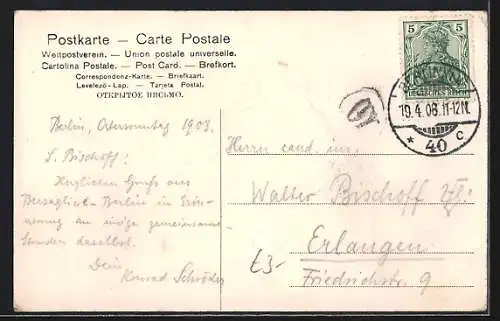 Postkarte — Carte Postale
Weltpostverein. — Union postale universelle.
Cartolina Postale. — Post Card. — Brefkort.
Correspondenz-Karte. — Briefkaart.
Levelező-Lap. — Tarjeta Postal.
ОТКРЫТОЕ ПИСЬМО.
5 5
DEUTSCHES REICH
19.4.08.11-12N.
* 40 c
Berlin, Ostersonntag 1908.
L. Bischoff!
Herzlichen Gruß aus
Berlin in Erin-
nerung an einige gemeinsame
Stunden daselbst.
Dein
Konrad Schröder
Herrn cand. jur.
Walter Bischoff
Erlangen
Friedrichstr. 9
£3-